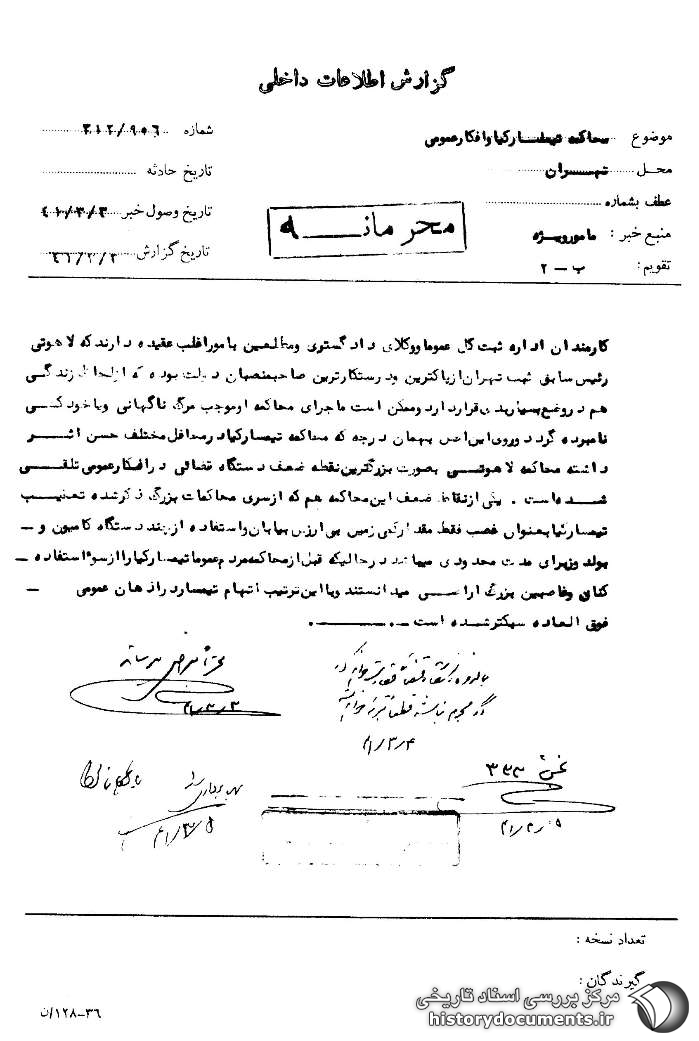 گزارش اطلاعات داخلی
موضوع محاکمه تیمسار کیا و افکار عمومی
شماره ۳۱۲/۹۰۶
محل تهران
تاریخ حادثه
عطف بشماره
تاریخ وصول خبر ۴۱/۳/۳
منبع خبر : مامور ویژه
محرمانه
تاریخ گزارش ۴۱/۳/۳
تقویم : ب - ۲
کارمندان اداره ثبت کل عموما و وکلای دادگستری و مطالعین بامور اغلب عقیده دارند که لاهوتی
رئیس سابق ثبت تهران از پاکترین و درستکارترین صاحبمنصبان دولت بوده که از لحاظ زندگی
هم در وضع بسیار بدی قرار دارد و ممکن است ماجرای محاکمه او موجب مرگ ناگهانی و یا خودکشی
نامبرده گردد و روی این اصل بهمان درجه که محاکمه تیمسار کیا در محافل مختلف حسن اثر
داشته محاکمه لاهوتی بصورت بزرگترین نقطه ضعف دستگاه قضائی در افکار عمومی تلقی
شده است . یکی از نقاط ضعف این محاکمه هم که از سری محاکمات بزرگ ذکر شده تعقیب
تیمسار کیا بعنوان غصب فقط مقداری زمین بی ارزش بیابان و استفاده از چند دستگاه کامیون و -
بولدوزر برای مدت محدودی میباشد در حالیکه قبل از محاکمه مردم عموما تیمسار کیا را از سوء استفاده -
کنان و غاصبین بزرگ اراضی میدانستند و با این ترتیب اتهام تیمسار در اذهان عمومی -
فوق العاده سبکتر شده است .
۴۱/۳/۳
۴۱/۳/۴
بخش ۳۳۳
بهره برداری
۴۱/۳/۵
۴۱/۳/۵
تعداد نسخه :
گیرندگان :
۳۶-۱۲۸/ن
مرکز بررسی اسناد تاریخی
historydocuments.ir